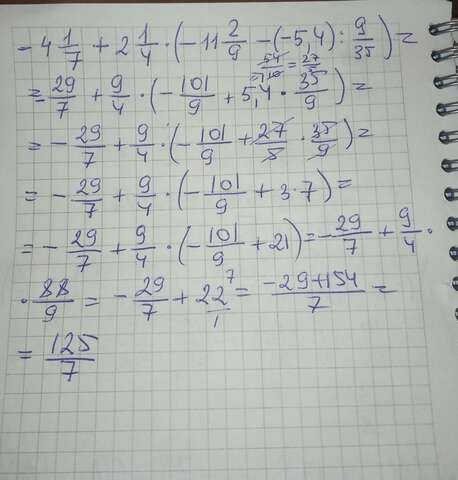 - 4 1/7 + 2 1/4 · (-11 2/9 - (-5,4) : 9/35) =
54/10 = 27/5
= 29/7 + 9/4 · (- 101/9 + 5,4 · 35/9) =
= - 29/7 + 9/4 · (- 101/9 + 27/5 · 35/9) =
= - 29/7 + 9/4 · (- 101/9 + 3·7) =
= - 29/7 + 9/4 · (- 101/9 + 21) = - 29/7 + 9/4 ·
· 88/9 = - 29/7 + 22/1 ⁷ = (-29+154)/7 =
= 125/7